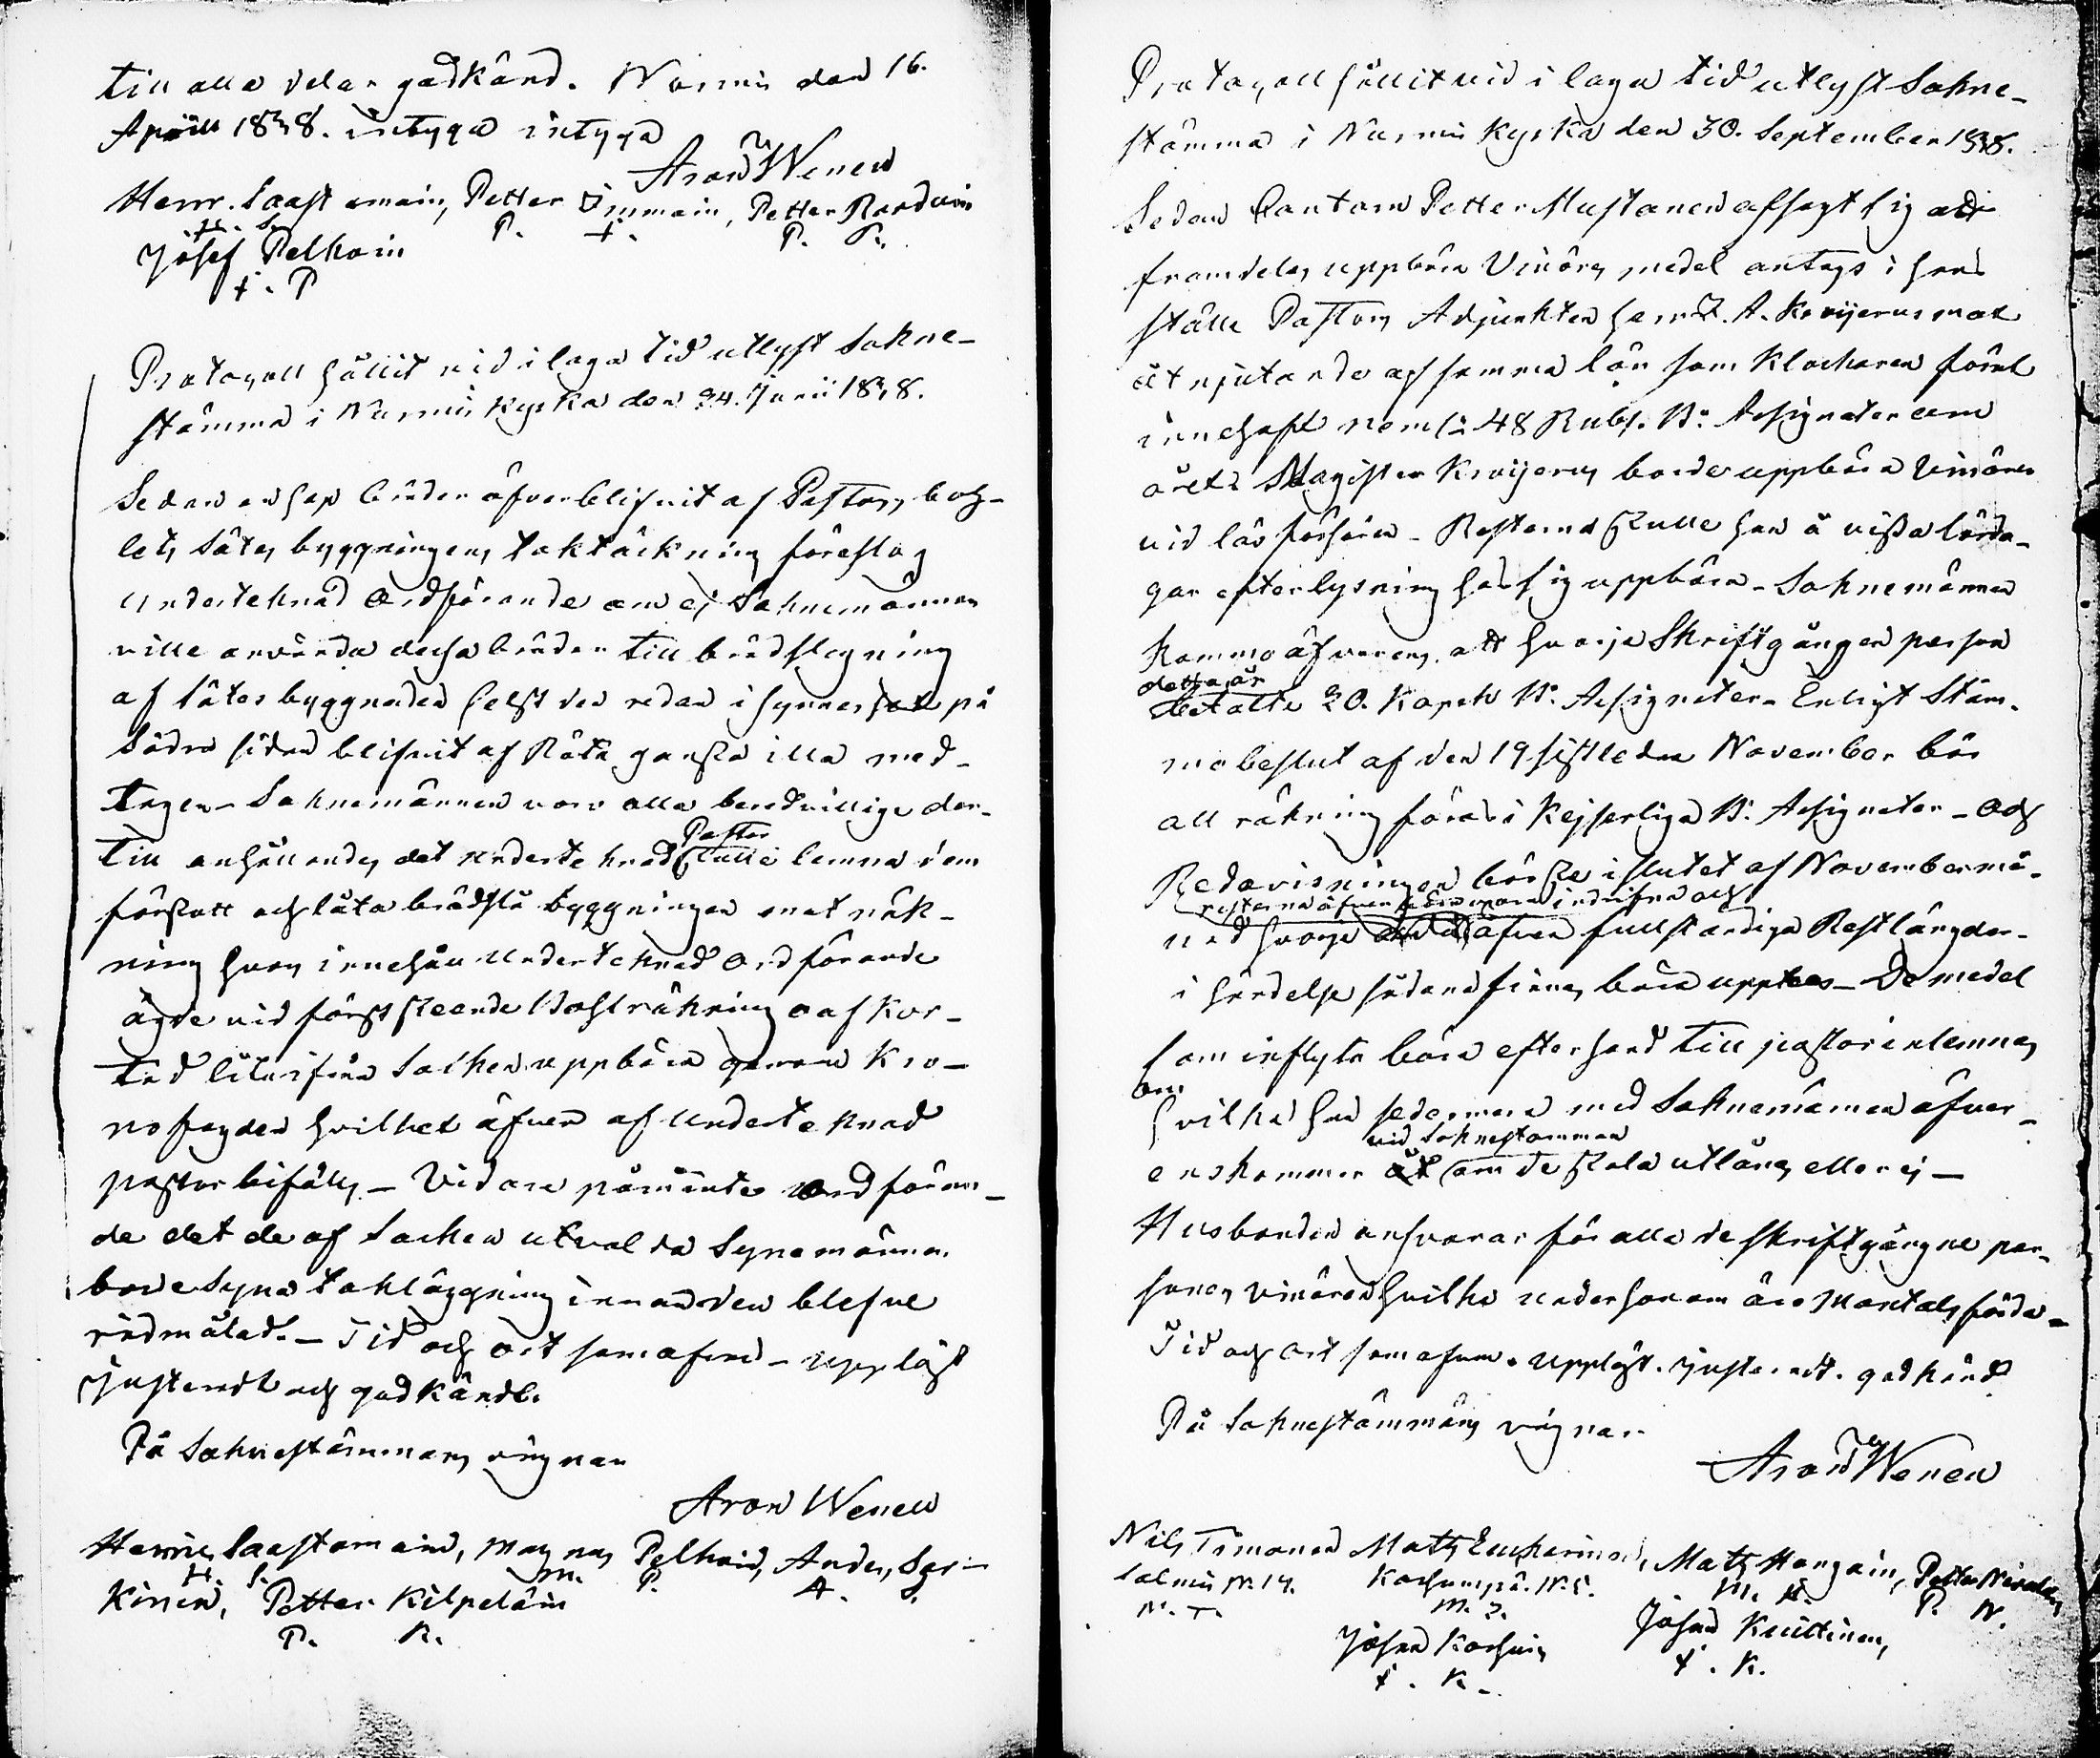 till alla delar godkänd. Nurmis den 16.
Aprill 1838. intyga intyga
Aron Wenell
Henr. Saastamoin, Petter Immoin, Petter
H. S. P. I. P. R.
Josef Pelkoin
I. P
Protocoll hållit vid i laga tid utlyst Sokne-
stämma i Nurmis Kyrka den 24. Junii 1838.
Sedan en hop bräder öfverblifvit af Pastors bol-
lets sätes byggningens taktäckning föreslog
undertecknad ordförande om ej Soknemännen
ville använda dessa bräder till brädslagning
af sätes byggnaden helst den redan i synnerhet på
Södra sidan blifvit af Röta ganska illa med-
tagen - Soknemännen voro alla beredvillige der-
till anhållandes det undertecknad Pastor skulle lemna dem
förskott och låta brädslå byggningen mot räk-
ning hvars innehåll undertecknad ordförande
ägde vid först skeende Bohlräkning af Kor-
tad liturifrån Socknen uppbära genom Kro-
nofogden hvilket äfven af undertecknad
pastor bifölls - Vidare påminte ordföran-
de det de af Socknen utvalda Synemännen
borde syna takläggning innan den blefve
rödmålad. - Tid och ort som ofvan - Uppläst
justeradt och godkändt.
På Soknestämmans vägnar
Aron Wenell
Henric Saastamoin, Magnus Pelkoin, Anders Sor-
H. S. M. P. A. S.
kinen, Petter Kilpeläin
P. K.
Protocoll hållit vid i laga tid utlyst Sokne-
stämma i Nurmis Kyrka den 30. September 1838.
Sedan Cantorn Petter Mustonen afsagt sig att
framdeles uppbära Vinöres medel antogs i hans
ställe Pastors Adjunkten herr A. Kroijerus mot
åtnjutande af samma lön som Klockaren förut
innehaft neml: 48 Rub. B: Assignater om
året. Magister Kroijerus borde uppbära Vinören
vid läsförhören - Resterna skulle han å vissa lörda-
gar efter lysning hos sig uppbära - Soknemännen
kommo öfverens att hvarje Skriftgången person
detta år
betalte 20. Kopek B: Assignater - Enligt Stäm-
mobeslut af den 19 sistledne November bör
all räkning föras i Kejserliga B: Assignater - och
Redovisningen bör ske i slutet af November må-
resterna äfven indrifna och
nad hvarje äfven fullständiga Restlängder
i händelse sådana finnas böra upptes - De medel
som inflyta böra efterhand till pastor inlemnas
om
hvilka han sedermera med Soknemännen öfver-
vid Soknestämman
enskommer om de skola utlånas eller ej -
Husbonden ansvarar för alla de skriftgångne per-
soners vinören hvilka under honom äro Mantalsförda -
Tid och ort som ofvan. Uppläst. justeradt. godkändt
På Soknestämmans vägnar
Aron Wenell
Nils Timonen Matts, Matts Hongain, Petter
Salmis N. 14. N. 5. M. H. P. N.
N. T. M. Johan Kuittinen,
Johan Korhoin I. K.
I. K.